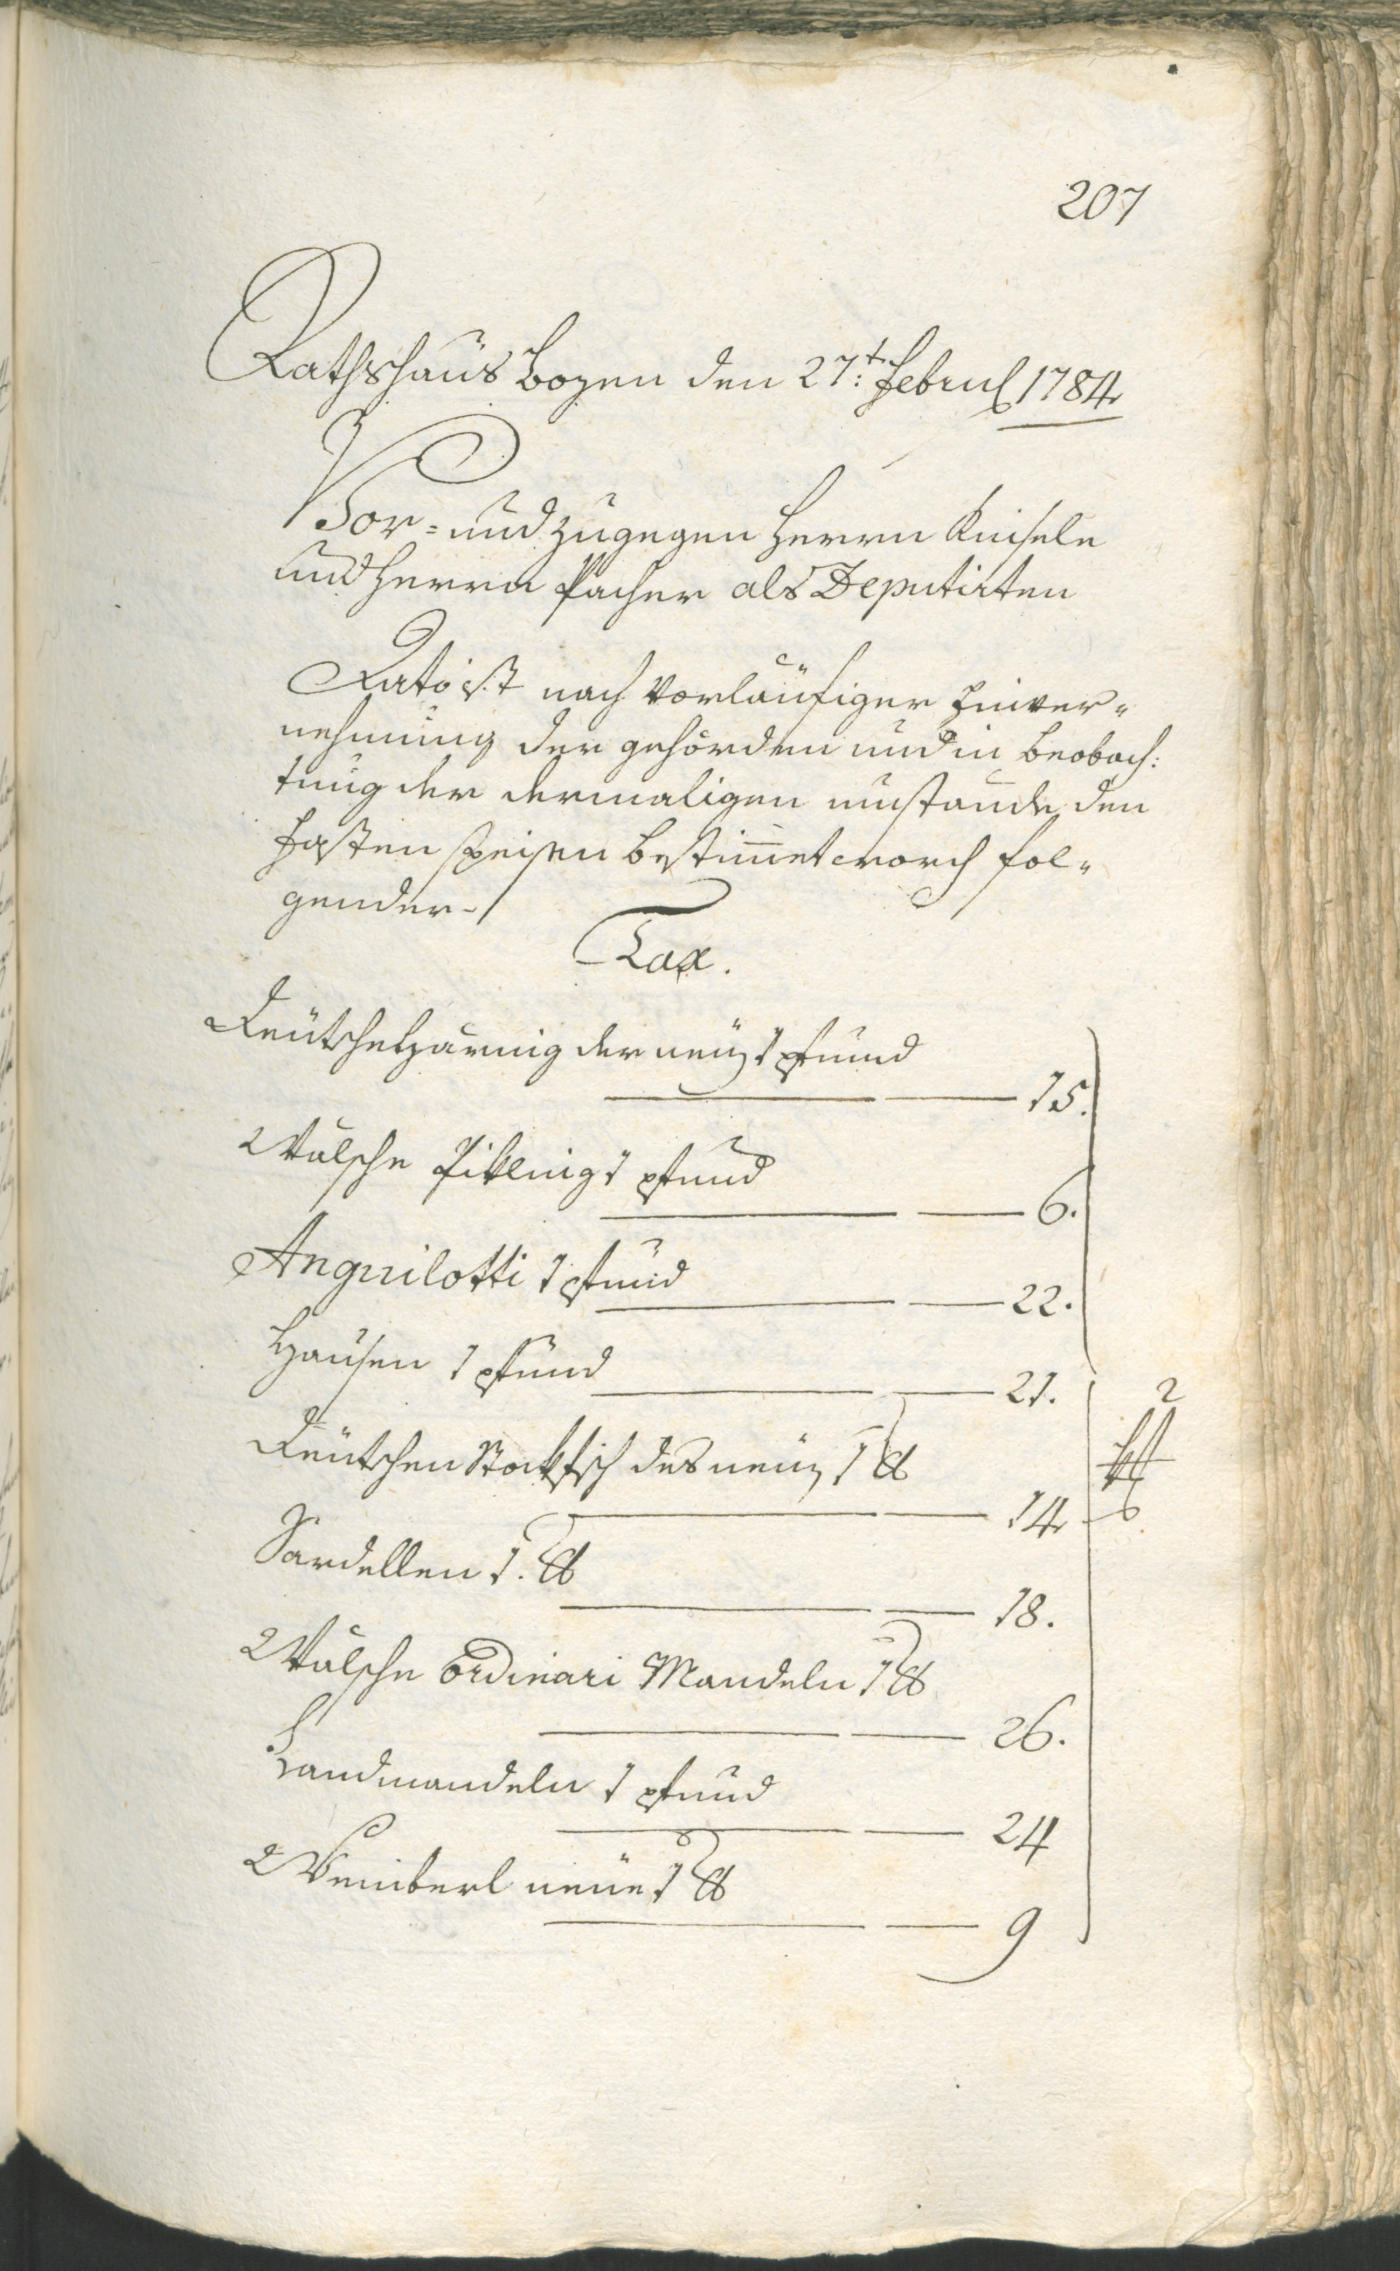 207
Rathshaus Bozen den 27:t Febru 1784
Vor= und zugegen Herrn Kuisele
und Herrn Pacher als Deputirten
Dato ist nach vorläufiger Einver„
nehmung der gehörden und in beobach:
tung der dermaligen umstände den
Fastenspeisen bestimmet worden fol„
gender
Tax.
Deutsche Häring der neuen 1 pfund
15.
Wälsche Pikling 1 pfund
6.
Anguilotti 1 pfund
22.
Hausen 1 pfund
21.
Deutschen Stockfisch des neuen 1 ℔
14
Sardellen 1. ℔
18.
Wälsche Ordinari Mandeln 1 ℔
26.
Landmandeln 1 pfund
24
Weinberl neue 1 ℔
9